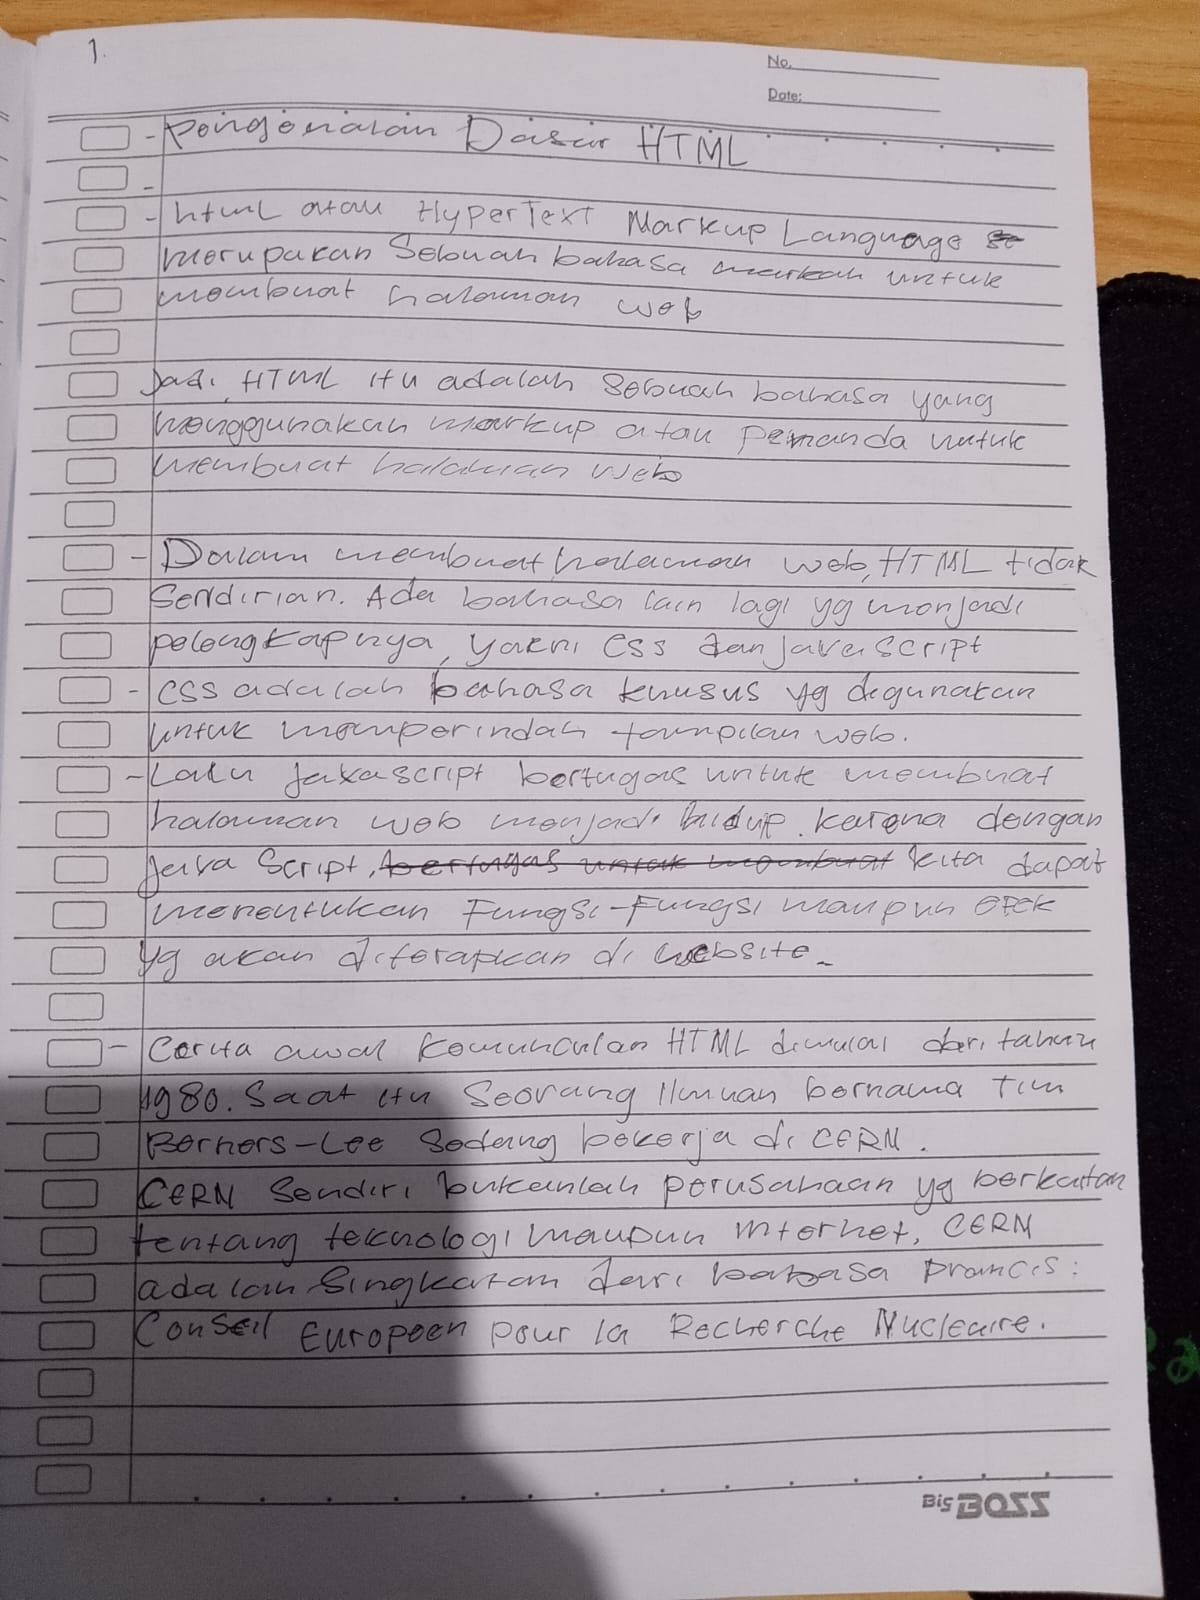 1.
No.
Date:
- Pengenalan Dasar HTML
-
- html atau HyperText Markup Language
merupakan Sebuah bahasa markah untuk
membuat halaman web
Jadi, HTML itu adalah Sebuah bahasa yang
menggunakan markup atau Pemanda untuk
membuat halaman web
- Dalam membuat halaman web, HTML tidak
Sendirian. Ada bahasa lain lagi yg menjadi
pelengkapnya, yakni CSS dan JavaScript
- CSS adalah bahasa khusus yg digunakan
untuk memperindah tampilan web.
- Lalu Javascript bertugas untuk membuat
halaman web menjadi hidup. karena dengan
Java Script, bertugas untuk membuat kita dapat
menentukan Fungsi-Fungsi maupun efek
yg akan diterapkan di website.
- Cerita awal Kemunculan HTML dimulai dari tahun
1980. Saat itu Seorang Ilmuan bernama Tim
Berners-Lee Sedang bekerja di CERN.
CERN Sendiri bukanlah perusahaan yg berkaitan
tentang teknologi maupun internet, CERN
adalah Singkatan dari bahasa Prancis:
Conseil Européen pour la Recherche Nucleaire.
Big BOSS